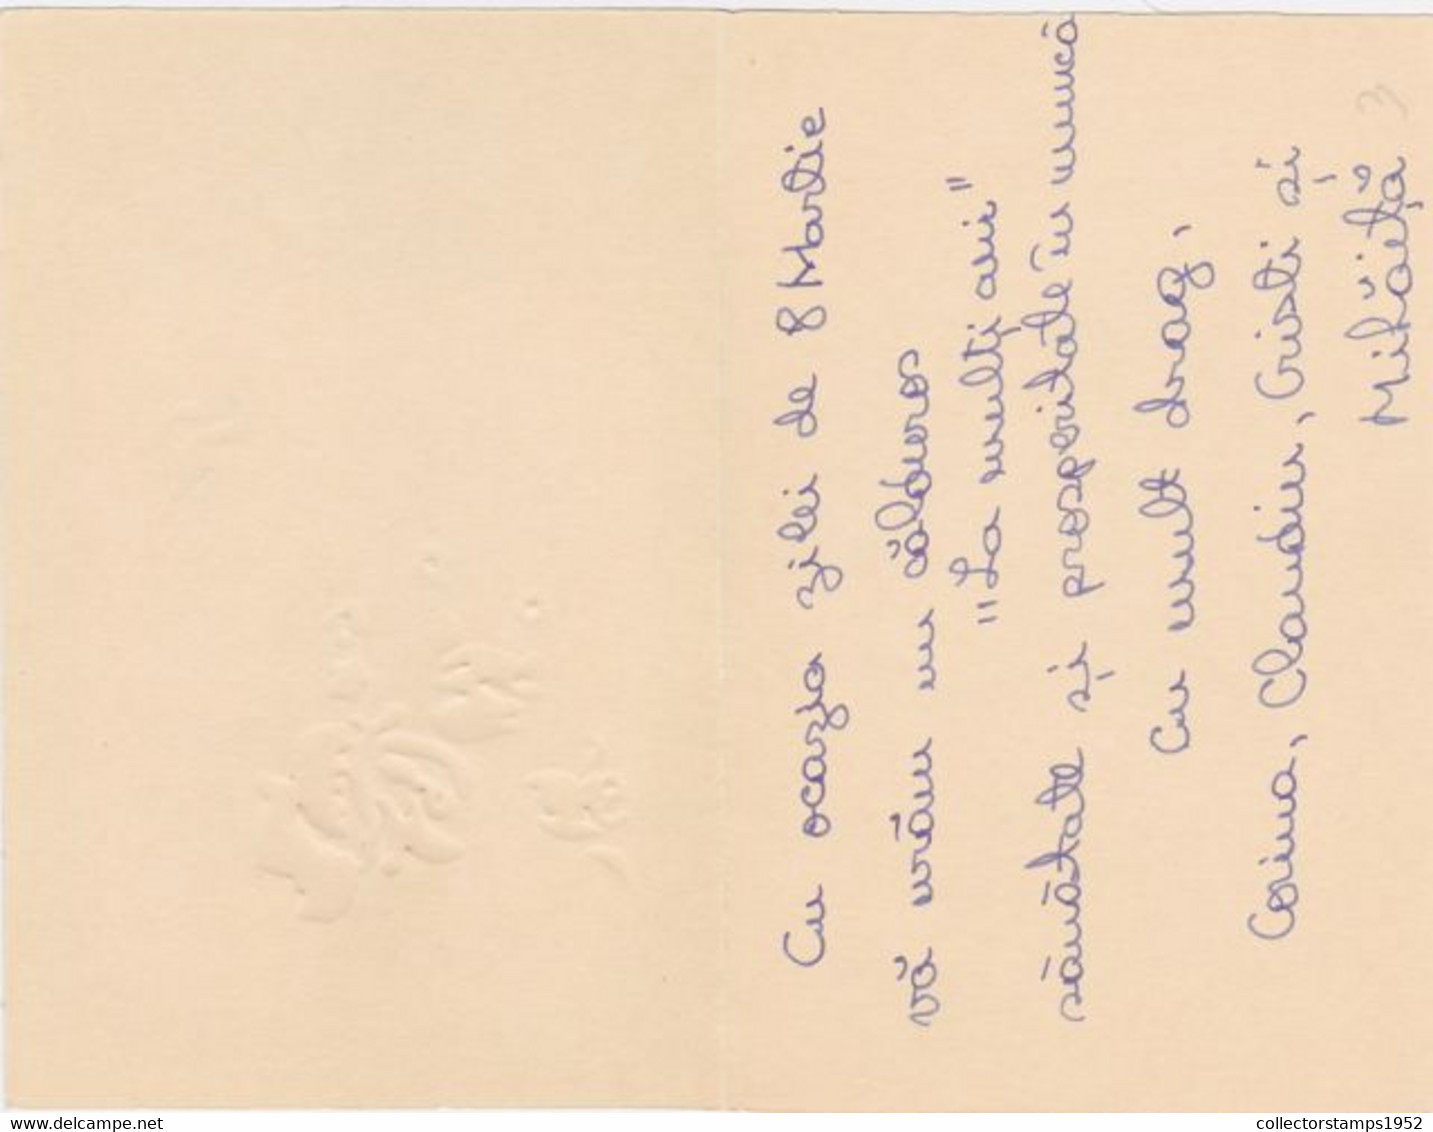 Cu ocazia zilei de 8 Martie
vă urăm un călduros
"La mulți ani"
sănătate și prosperitate în muncă
Cu mult drag,
Cosima, Claudiu, Cristi și
Mihăiță
3
delcampe.net
collectorstamps1952